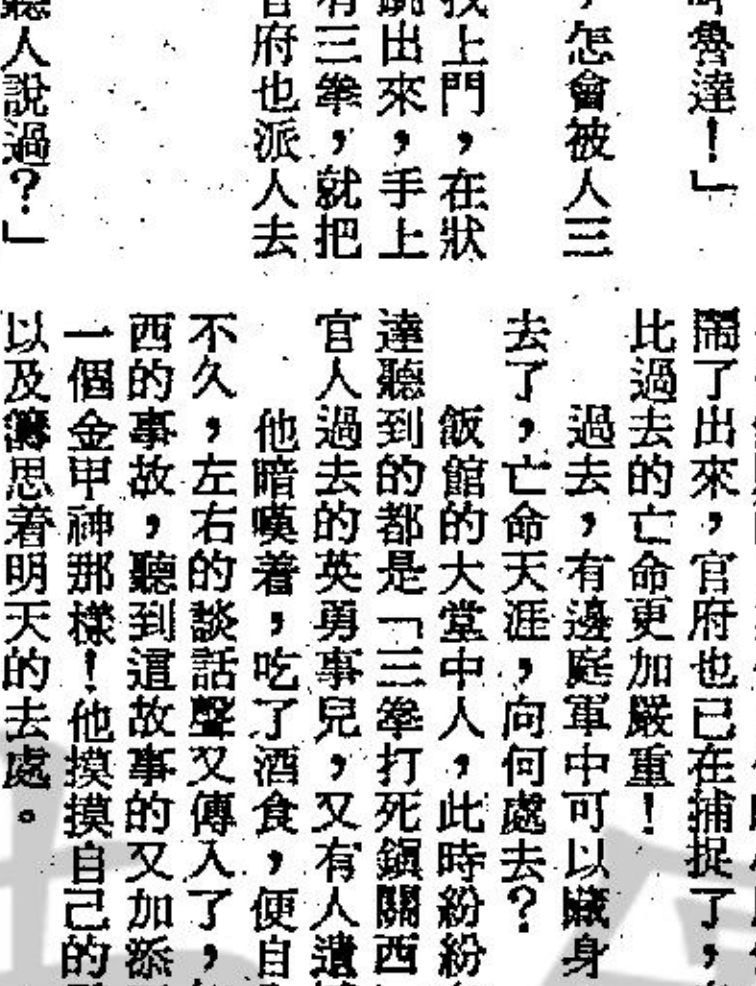 魯達！」
，怎會被人三
找上門，在狀
跳出來，手上
有三拳，就把
官府也派人去
聽人說過？」
鬧了出來，官府也已在捕捉了，
比過去的亡命更加嚴重！
過去，有邊庭軍中可以藏身
去了，亡命天涯，向何處去？
飯館的大堂中人，此時紛紛
達聽到的都是「三拳打死鎮關西
官人過去的英勇事兒，又有人遺
他暗嘆着，吃了酒食，便自
不久，左右的談話聲又傳入了，
西的事故，聽到這故事的又加添
一個金甲神那樣！他摸摸自己的
以及籌思着明天的去處。